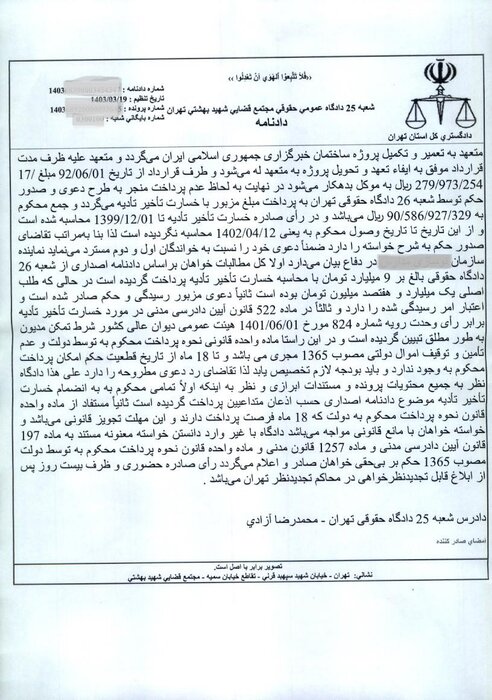 «فَلاَ تَتَّبِعُوا الْهَوَىٰ أَن تَعْدِلُوا»
شماره دادنامه : 1403
تاریخ تنظیم : 1403/03/19
شماره پرونده : 1403
شماره بایگانی شعبه :
شعبه 25 دادگاه عمومي حقوقي مجتمع قضايي شهيد بهشتي تهران
دادنامه
دادگستري کل استان تهران
متعهد به تعمیر و تکمیل پروژه ساختمان خبرگزاری جمهوری اسلامی ایران می‌گردد و متعهد علیه ظرف مدت
قرارداد موفق به ایفاء تعهد و تحویل پروژه به متعهد له می‌شود و طرف قرارداد از تاریخ 92/06/01 مبلغ /17
279/973/254 ریال به موکل بدهکار می‌شود در نهایت به لحاظ عدم پرداخت منجر به طرح دعوی و صدور
حکم توسط شعبه 26 دادگاه حقوقی تهران به پرداخت مبلغ مزبور با خسارت تأخیر تأدیه می‌گردد و جمع محکوم
به 90/586/927/329 ریال می‌باشد و در رأی صادره خسارت تأخیر تأدیه تا 1399/12/01 محاسبه شده است
و از این تاریخ تا تاریخ وصول محکوم به یعنی 1402/04/12 محاسبه نگردیده است لذا بنا به‌مراتب تقاضای
صدور حکم به شرح خواسته را دارد ضمناً دعوی خود را نسبت به خواندگان اول و دوم مسترد می‌نماید نماینده
سازمان در دفاع بیان می‌دارد اولا کل مطالبات خواهان براساس دادنامه اصداری از شعبه 26
دادگاه حقوقی بالغ بر 9 میلیارد تومان با محاسبه خسارت تأخیر تأدیه پرداخت گردیده است در حالی که طلب
اصلی یک میلیارد و هفتصد میلیون تومان بوده است ثانیاً دعوی مزبور رسیدگی و حکم صادر شده است و
اعتبار امر رسیدگی شده را دارد و ثالثاً در ماده 522 قانون آیین دادرسی مدنی در مورد خسارت تأخیر تأدیه
برابر رأی وحدت رویه شماره 824 مورخ 1401/06/01 هیئت عمومی دیوان عالی کشور شرط تمکن مدیون
به طور مطلق تبیین گردیده است و در این راستا ماده واحده قانونی نحوه پرداخت محکوم به توسط دولت و عدم
تأمین و توقیف اموال دولتی مصوب 1365 مجری می باشد و تا 18 ماه از تاریخ قطعیت حکم امکان پرداخت
محکوم به وجود ندارد و باید بودجه لازم تخصیص یابد لذا تقاضای رد دعوی مطروحه را دارد علی هذا دادگاه
نظر به جمیع محتویات پرونده و مستندات ابرازی و نظر به اینکه اولاً تمامی محکوم به به انضمام خسارت
تأخیر تأدیه موضوع دادنامه اصداری حسب اذعان متداعیین پرداخت گردیده است ثانیاً مستفاد از ماده واحده
قانون نحوه پرداخت محکوم به دولت که 18 ماه فرصت پرداخت دارند و این مهلت تجویز قانونی می‌باشد و
خواسته خواهان با مانع قانونی مواجه می‌باشد دادگاه با غیر وارد دانستن خواسته معنونه مستند به ماده 197
قانون آیین دادرسی مدنی و ماده 1257 قانون مدنی و ماده واحده قانون نحوه پرداخت محکوم به توسط دولت
مصوب 1365 حکم بر بی‌حقی خواهان صادر و اعلام می‌گردد رأی صادره حضوری و ظرف بیست روز پس
از ابلاغ قابل تجدیدنظرخواهی در محاکم تجدیدنظر تهران می‌باشد .
دادرس شعبه 25 دادگاه حقوقی تهران - محمدرضا آزادي
امضاي صادر کننده
تصوير برابر با اصل است.
نشاني: تهران - خيابان شهيد سپهبد قرني - تقاطع خيابان سميه - مجتمع قضايي شهيد بهشتي